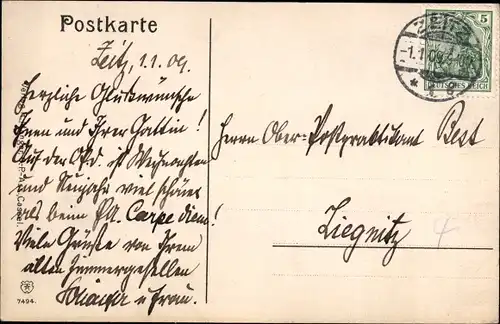 Postkarte
Zeitz, 1.1.09.
Herzliche Glückwünsche
Ihnen und Ihrer Gattin!
Auf der OPD. ist Weihnachten
und Neujahr viel schöner
als beim PA. Carpe diem!
Viele Grüße von Ihrem
alten Zimmergesellen
u Frau.
Herrn Ober-Postpraktikant Best
Liegnitz
ZEITZ
-1.1.09
DEUTSCHES REICH
5
Cassel.
7494.
4